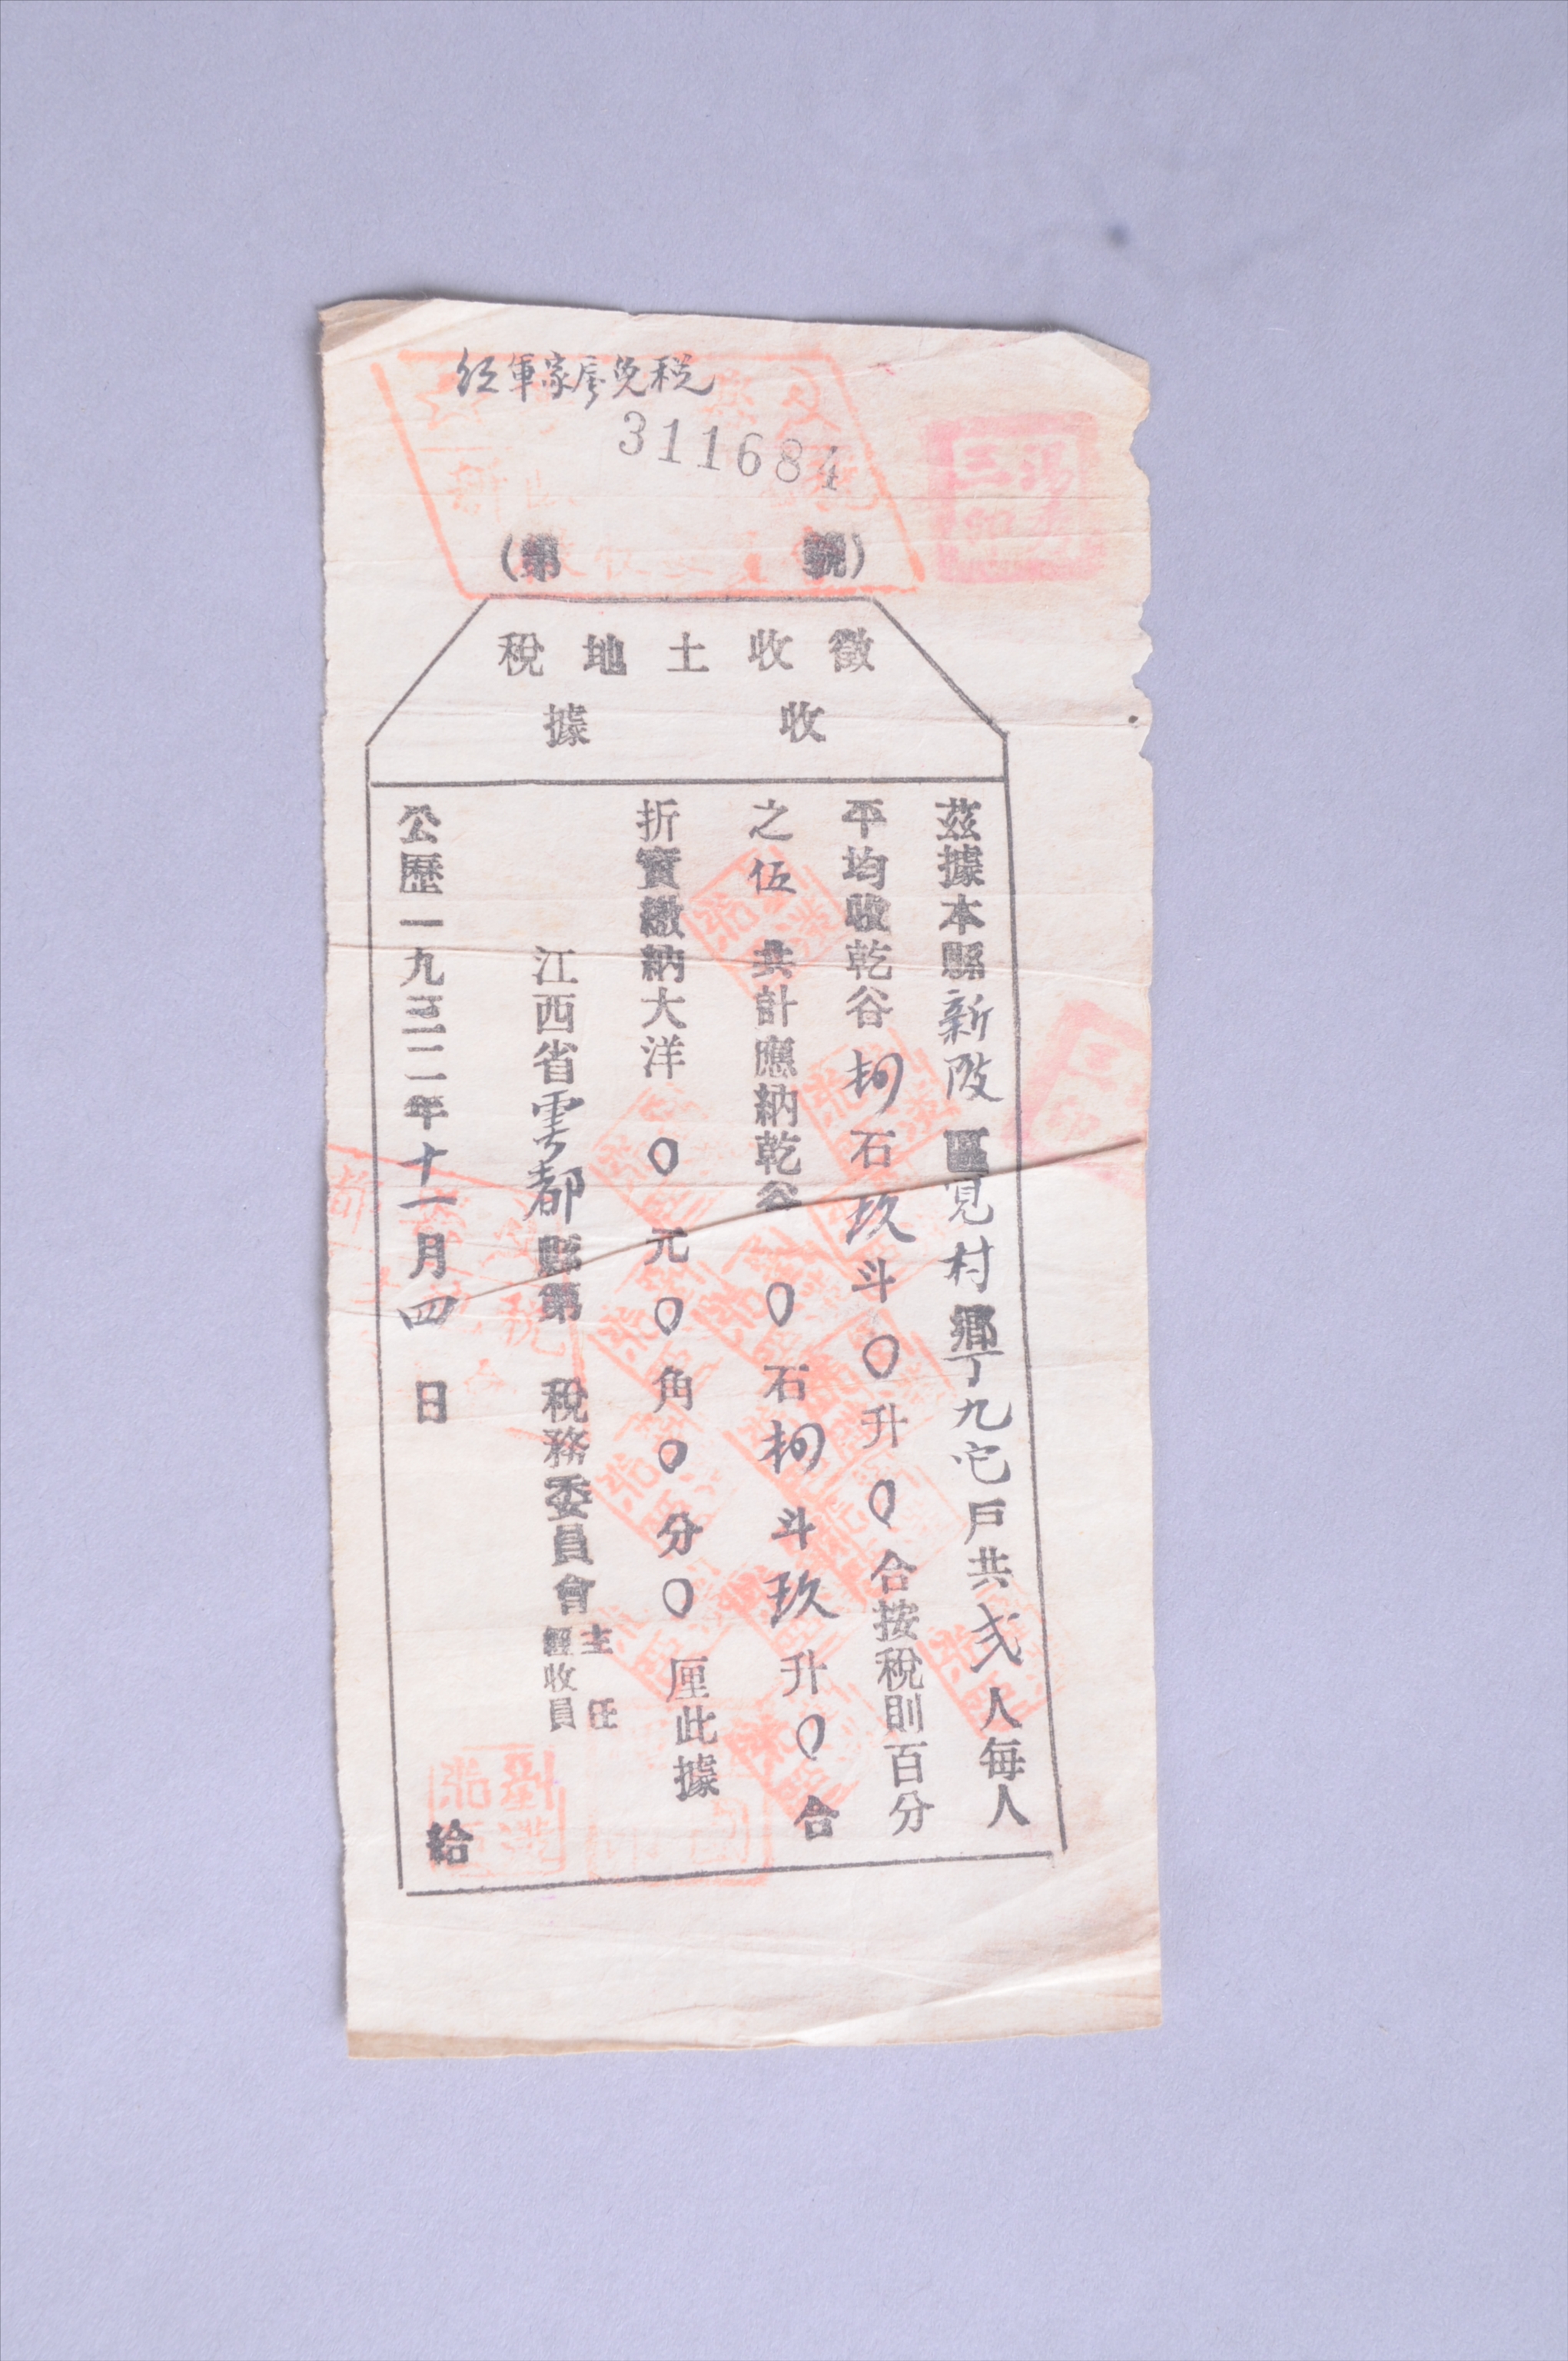 红軍家屬免税
311684
(第 號)
徵收土地稅
收據
茲據本縣新陂區寬村鄉丁九它戶共弍人每人
平均收乾谷柯石玖斗〇升〇合按稅則百分
之伍 共計應納乾谷〇石柯斗玖升〇合
折實繳納大洋〇元〇角〇分〇厘此據
江西省雩都縣第 稅務委員會
主任
經收員
公歷一九三二年十一月四日
給